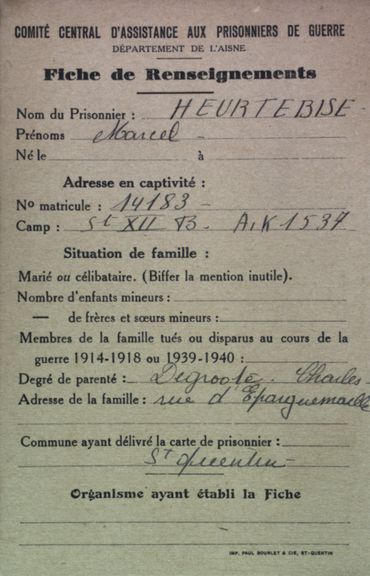 COMITÉ CENTRAL D'ASSISTANCE AUX PRISONNIERS DE GUERRE
DÉPARTEMENT DE L'AISNE
Fiche de Renseignements
Nom du Prisonnier : HEURTEBISE
Prénoms Marcel
Né le à
Adresse en captivité :
No matricule : 14183
Camp : St XII B. A.K 1537
Situation de famille :
Marié ou célibataire. (Biffer la mention inutile).
Nombre d'enfants mineurs :
— de frères et sœurs mineurs :
Membres de la famille tués ou disparus au cours de la
guerre 1914-1918 ou 1939-1940 :
Degré de parenté : Degroote. Charles
Adresse de la famille : rue d'Epargnemaille
Commune ayant délivré la carte de prisonnier :
St Quentin
Organisme ayant établi la Fiche
IMP. PAUL BOURLET & CIE, ST-QUENTIN